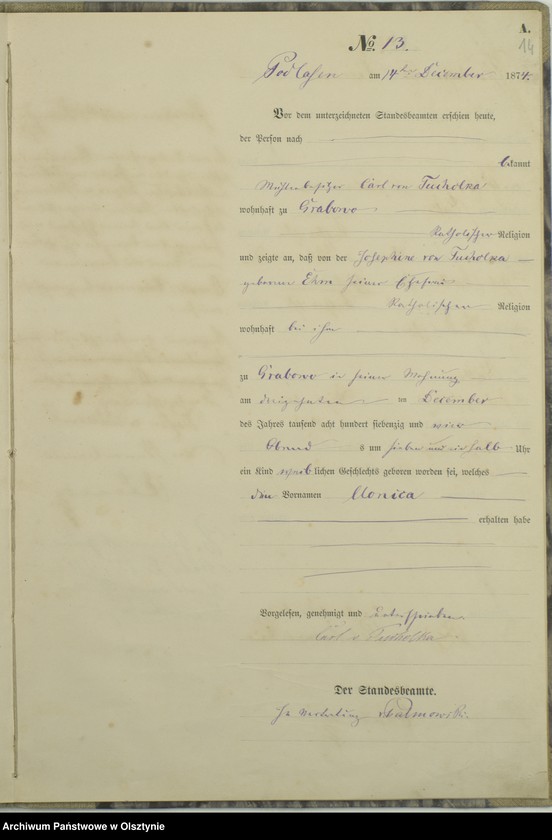 A.
14
No. 13.
am 14ten December 1874.
Vor dem unterzeichneten Standesbeamten erschien heute,
der Person nach
bekannt
Mühlenbesitzer Carl von Tucholka
wohnhaft zu Grabowo
katholischer Religion
und zeigte an, daß von der Josephine von Tucholka
geborene seiner Ehefrau
katholischer Religion
wohnhaft bei ihm
zu Grabowo in seiner Wohnung
am dreizehnten im December
des Jahres tausend acht hundert siebenzig und vier
Abends um sieben und ein halb Uhr
ein Kind weiblichen Geschlechts geboren worden sei, welches
den Vornamen Monica
erhalten habe
Vorgelesen, genehmigt und unterschrieben
Carl v Tucholka
Der Standesbeamte.
In Vertretung
Archiwum Państwowe w Olsztynie